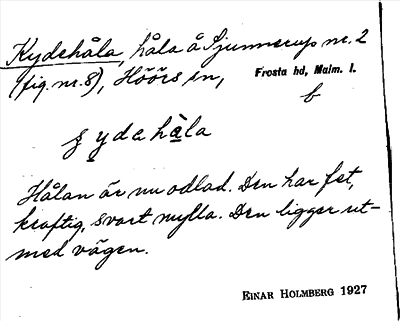 Kydehåla, håla å Sjunnerup nr. 2
(fig. nr. 8), Höörs sn, Frosta hd, Malm. l.
b
ydehàla
Hålan är nu odlad. Den har fet,
kraftig, svart mylla. Den ligger ut-
med vägen.
EINAR HOLMBERG 1927